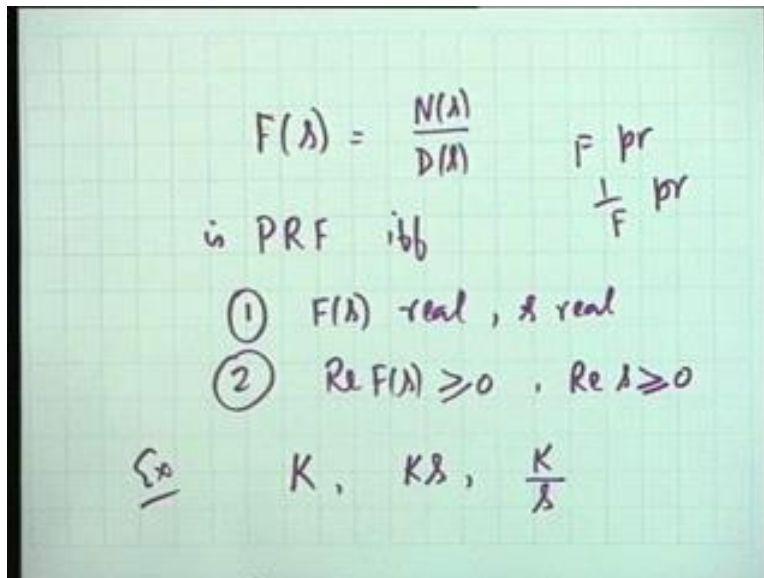 F(s) = N(s)/D(s)
F pr
1/F pr
is PRF iff
① F(s) real, s real
② Re F(s) ≥ 0, Re s ≥ 0
Ex K, Ks, K/s